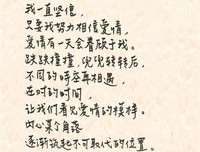 我一直坚信，
只要我努力相信爱情，
爱情有一天会眷顾于我。
跌跌撞撞，兜兜转转后，
不同的时空再相遇，
在对的时间，
让我们看见爱情的模样。
内心某个角落
逐渐筑起不可取代的位置。